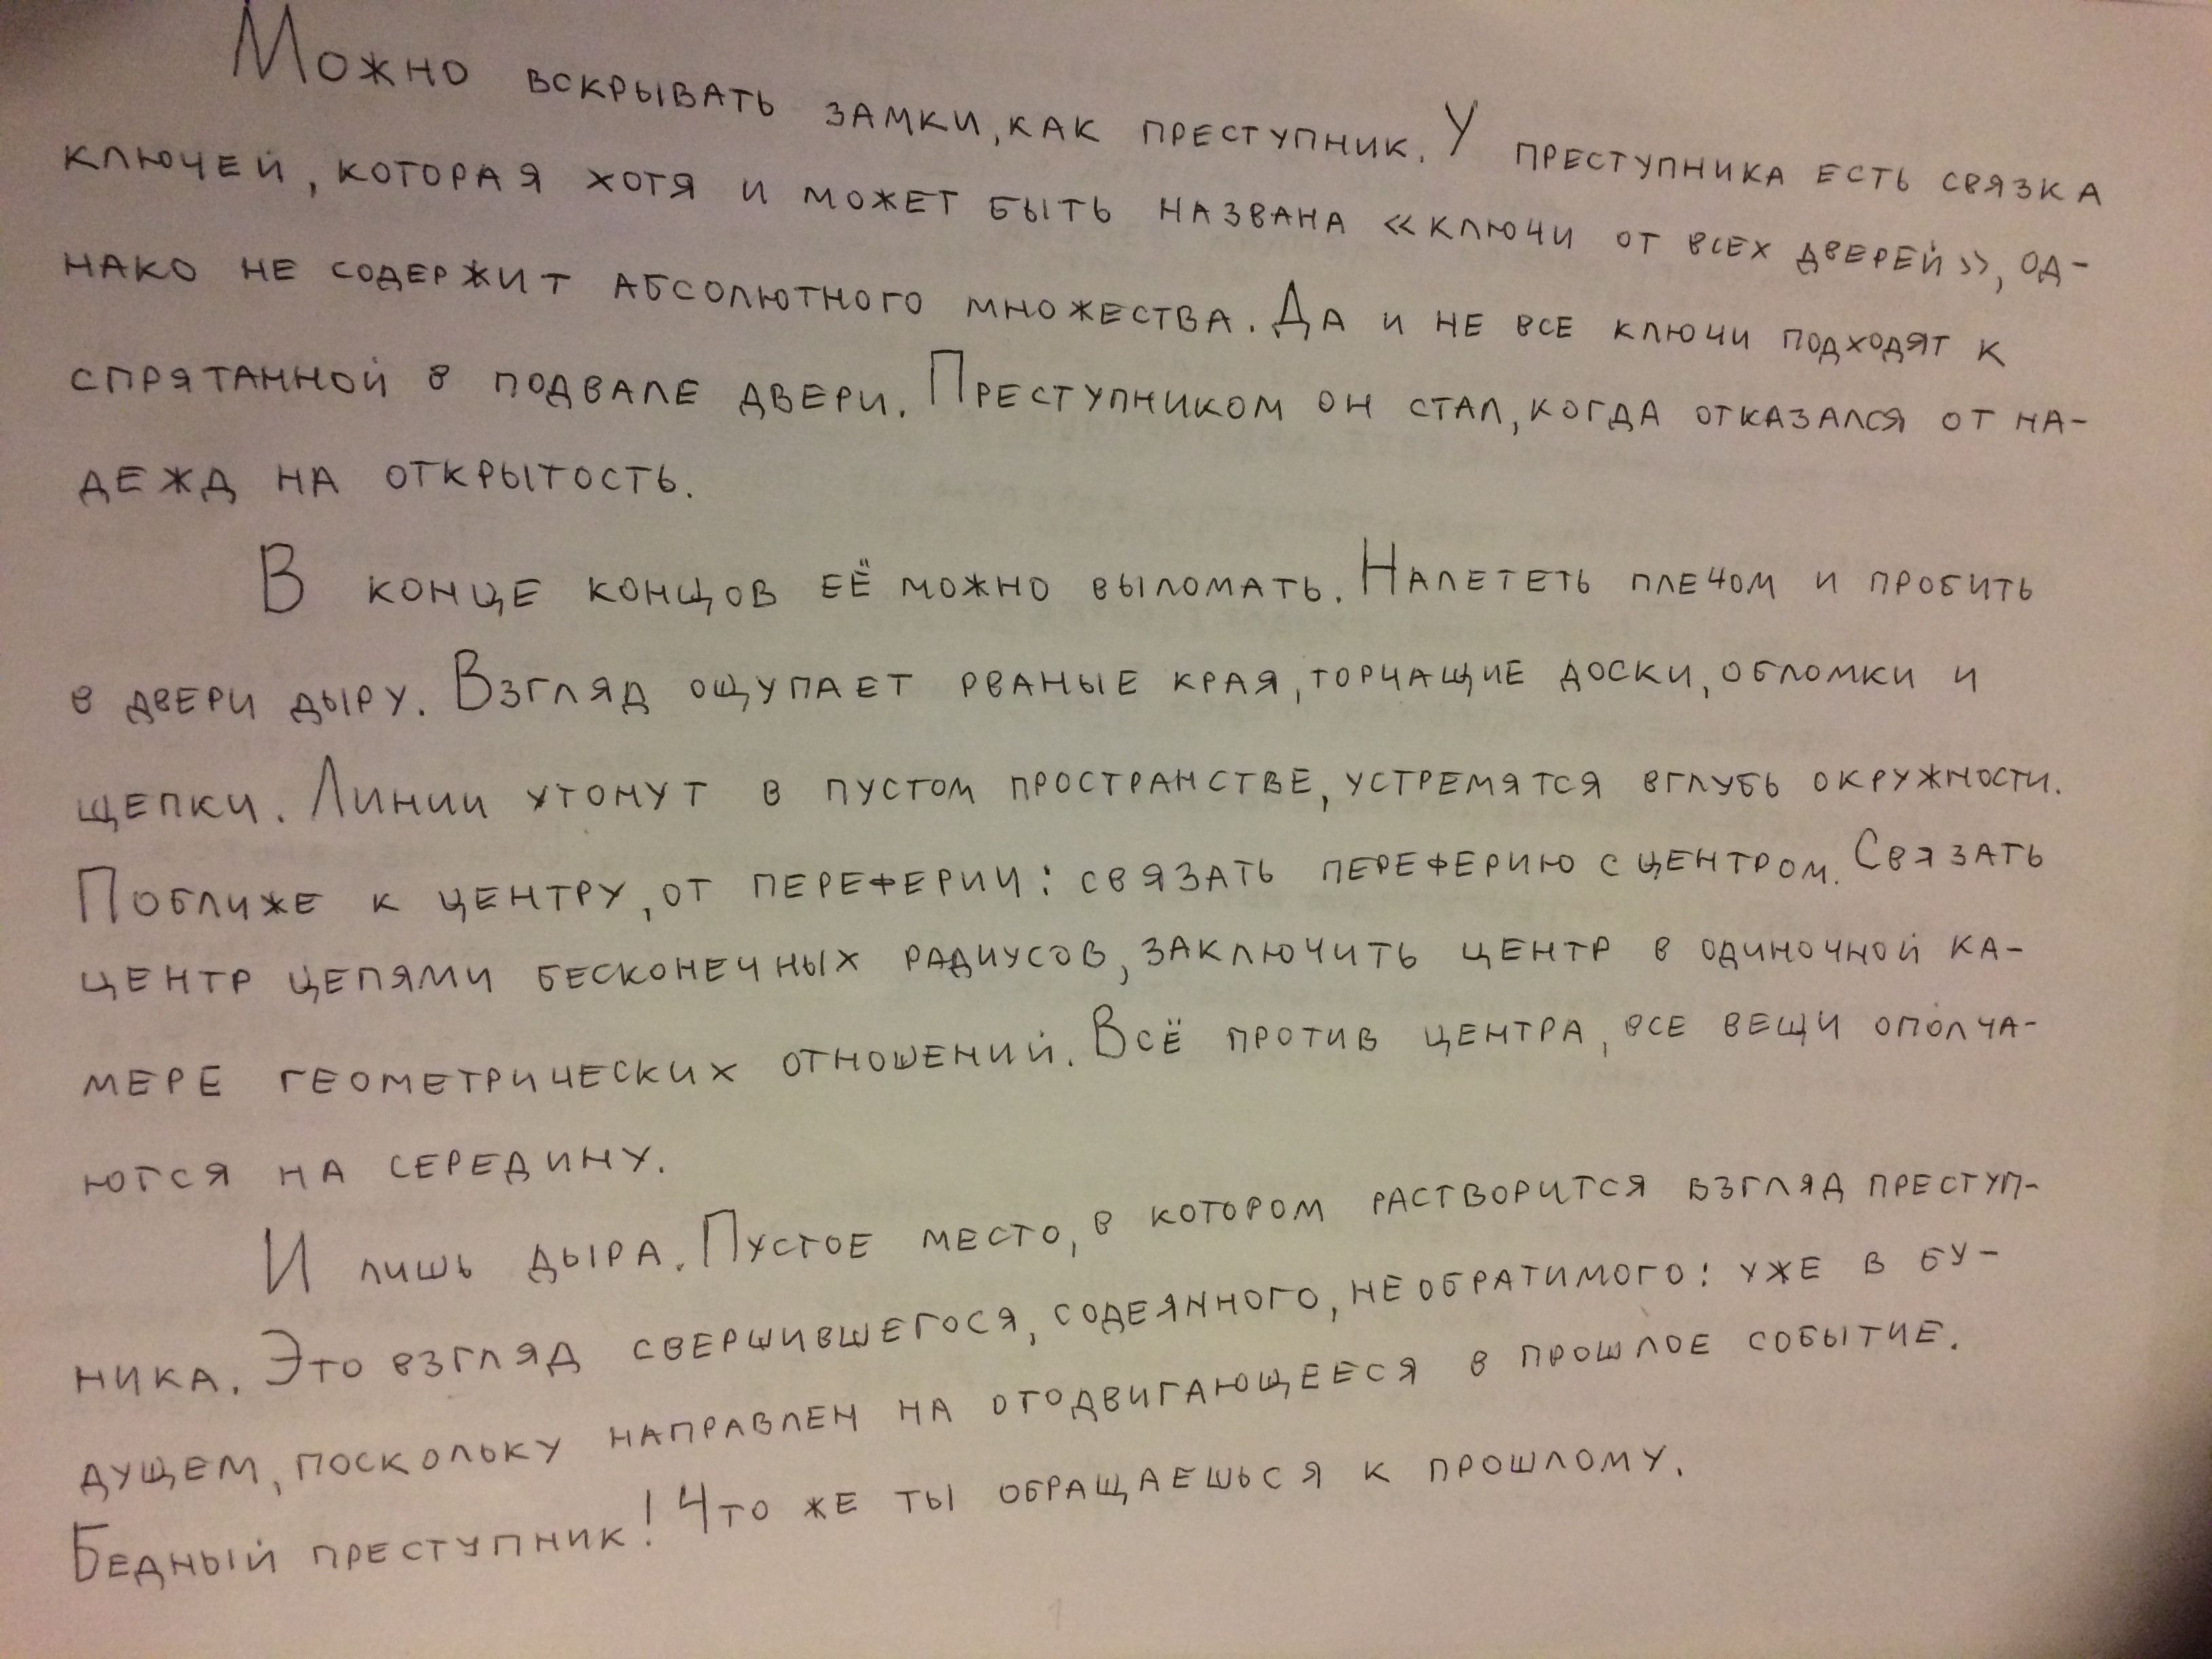 Можно вскрывать замки, как преступник. У преступника есть связка
ключей, которая хотя и может быть названа «ключи от всех дверей», од-
нако не содержит абсолютного множества. Да и не все ключи подходят к
спрятанной в подвале двери. Преступником он стал, когда отказался от на-
дежд на открытость.
В конце концов её можно выломать. Налететь плечом и пробить
в двери дыру. Взгляд ощупает рваные края, торчащие доски, обломки и
щепки. Линии утонут в пустом пространстве, устремятся вглубь окружности.
Поближе к центру, от переферии: связать переферию с центром. Связать
центр цепями бесконечных радиусов, заключить центр в одиночной ка-
мере геометрических отношений. Всё против центра, все вещи ополча-
ются на середину.
И лишь дыра. Пустое место, в котором растворится взгляд преступ-
ника. Это взгляд свершившегося, содеянного, необратимого: уже в бу-
дущем, поскольку направлен на отодвигающееся в прошлое событие.
Бедный преступник! Что же ты обращаешься к прошлому.